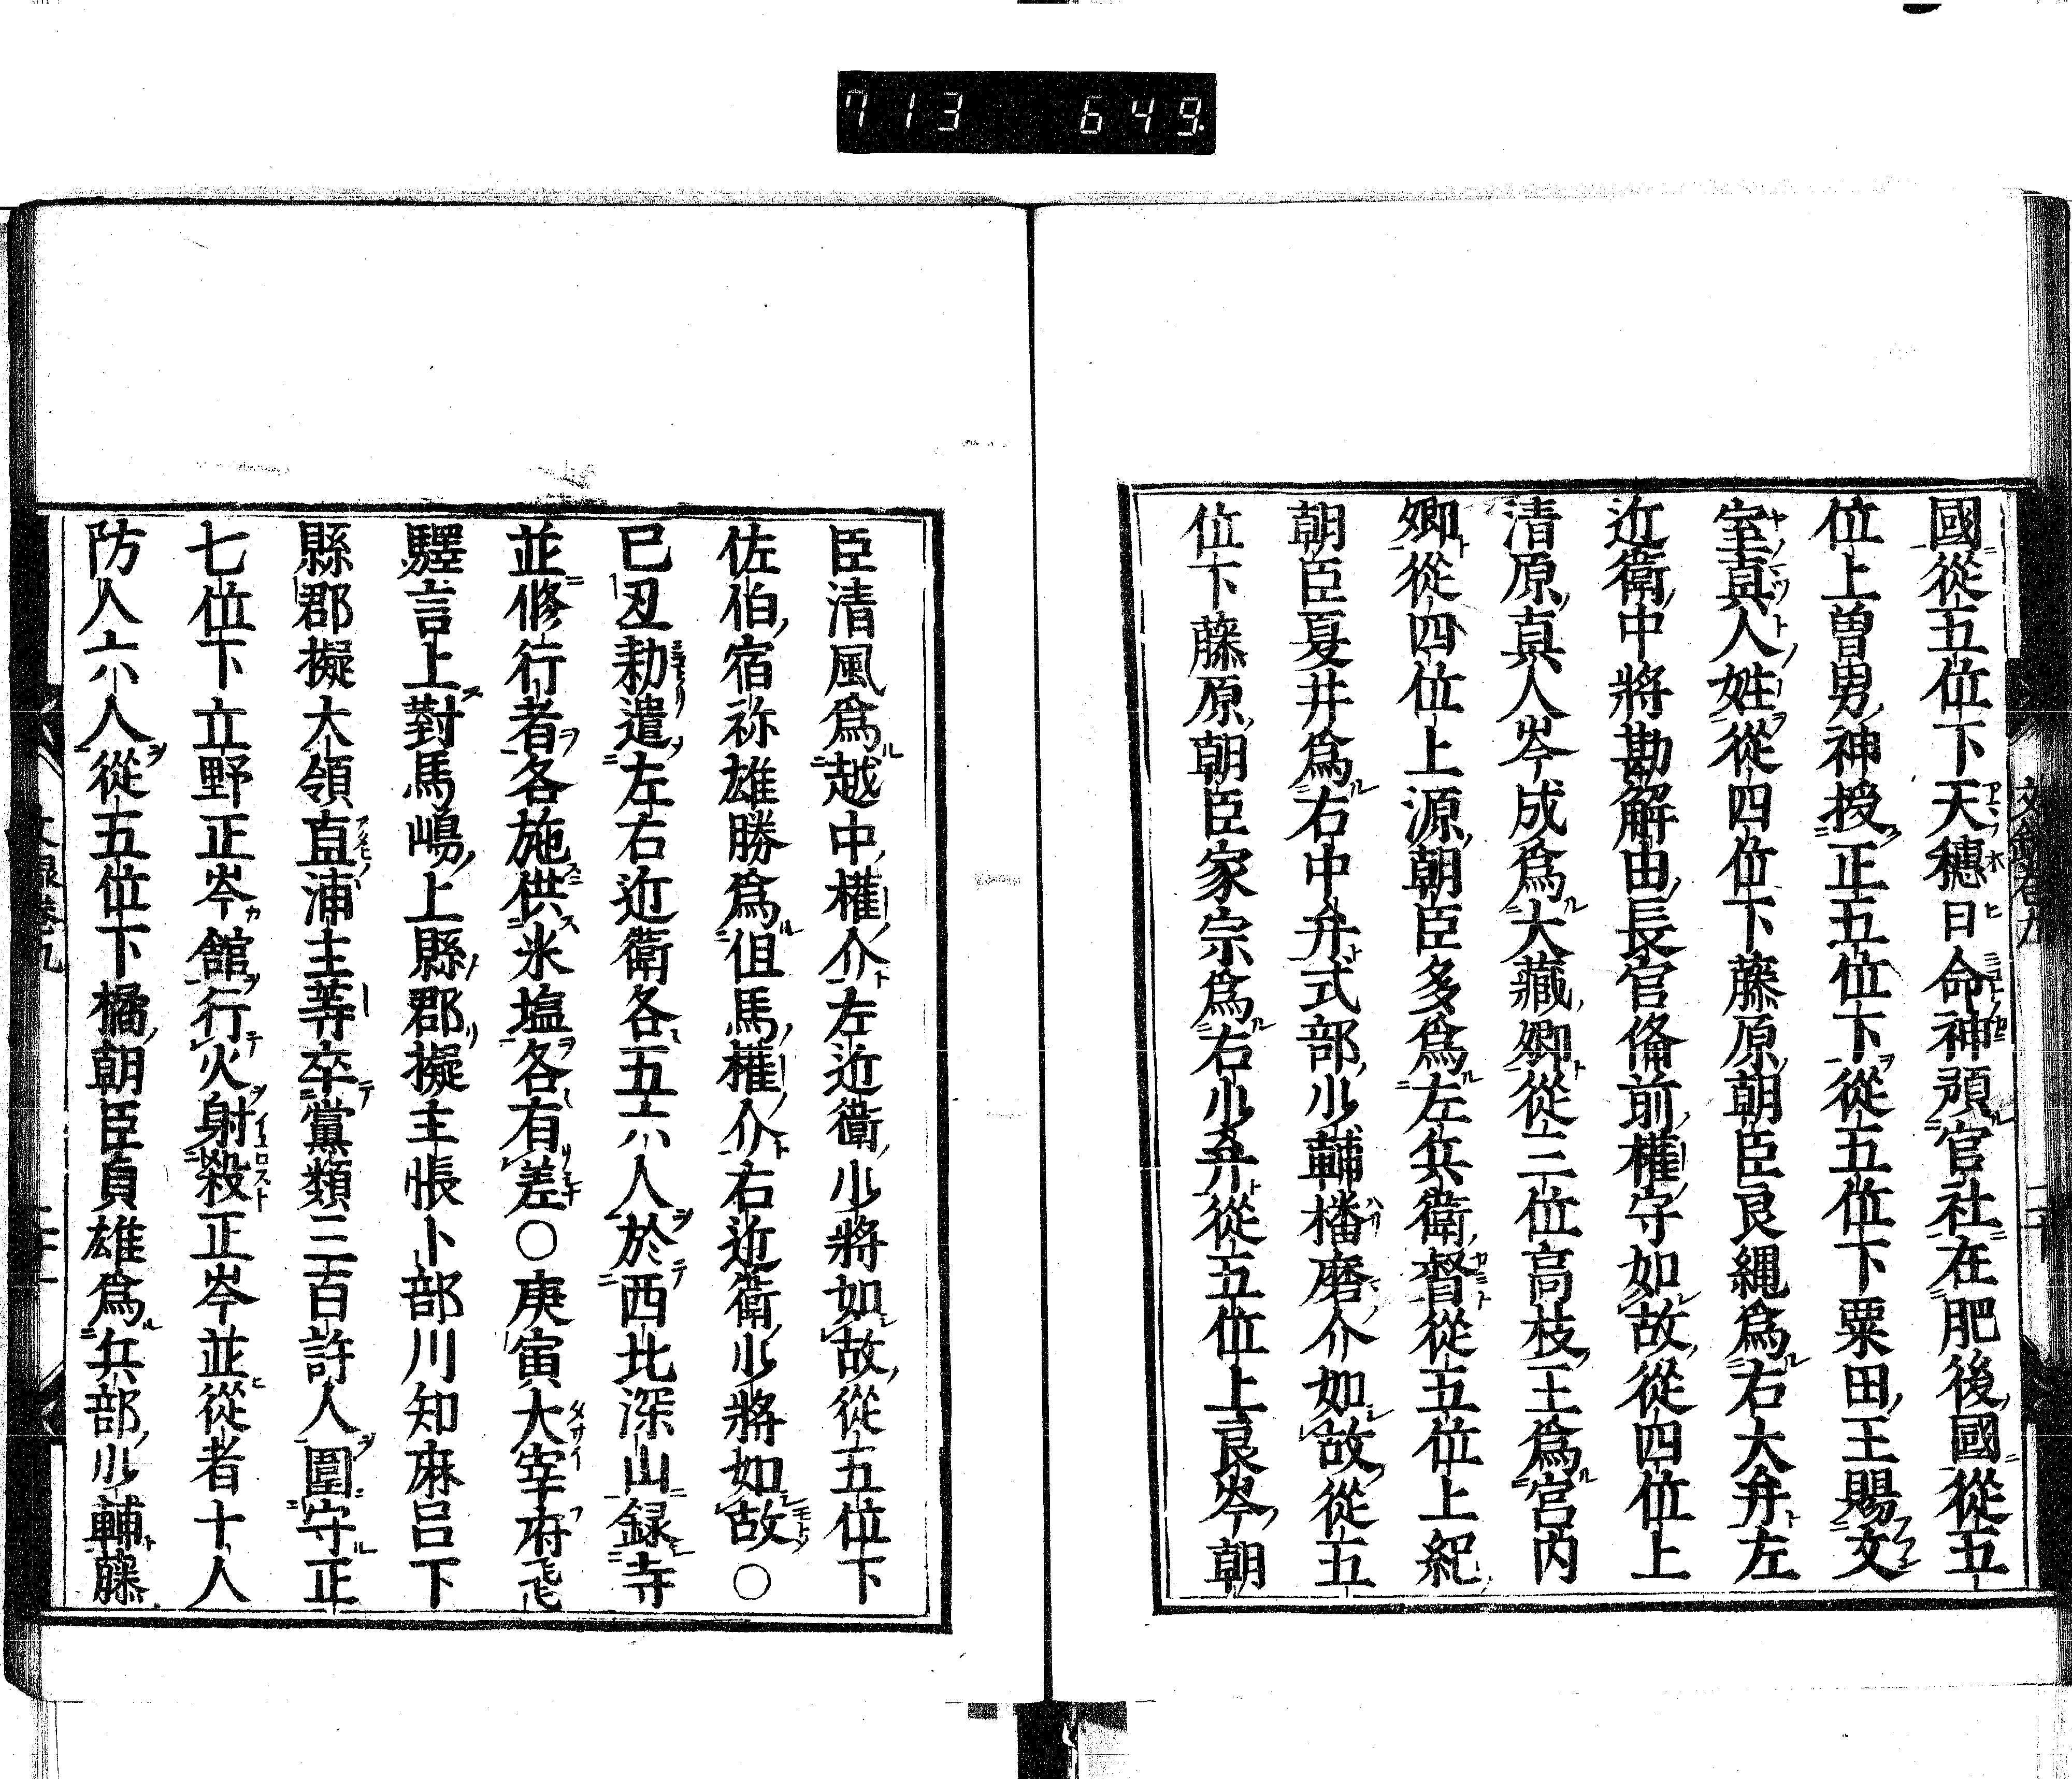 713 649
國從五位下天穗日命神預官社在肥後國從五
位上曽男神授正五位下從五位下粟田王賜文
室真人姓從四位下藤原朝臣良縄爲右大弁左
近衛中將勘解由長官俻前權守如故從四位上
清原真人岑成爲大藏卿從三位高枝王爲宮内
卿從四位上源朝臣多爲左兵衛督從五位上紀
朝臣夏井爲右中弁式部少輔播磨介如故從五
位下藤原朝臣家宗爲右少弁從五位上良岑朝
臣清風爲越中權介左近衛少將如故從五位下
佐伯宿祢雄勝爲伹馬權介右近衛少將如故○
己丑勅遣左右近衛各五六人於西北深山録寺
並修行者各施供米塩各有差○庚寅大宰府飛
驛言上對馬嶋上縣郡擬主帳卜部川知麻呂下
縣郡擬大領直浦主等卒黨類三百許人圍守正
七位下立野正岑館行火射殺正岑並從者十人
防人六人從五位下橘朝臣貞雄爲兵部少輔藤